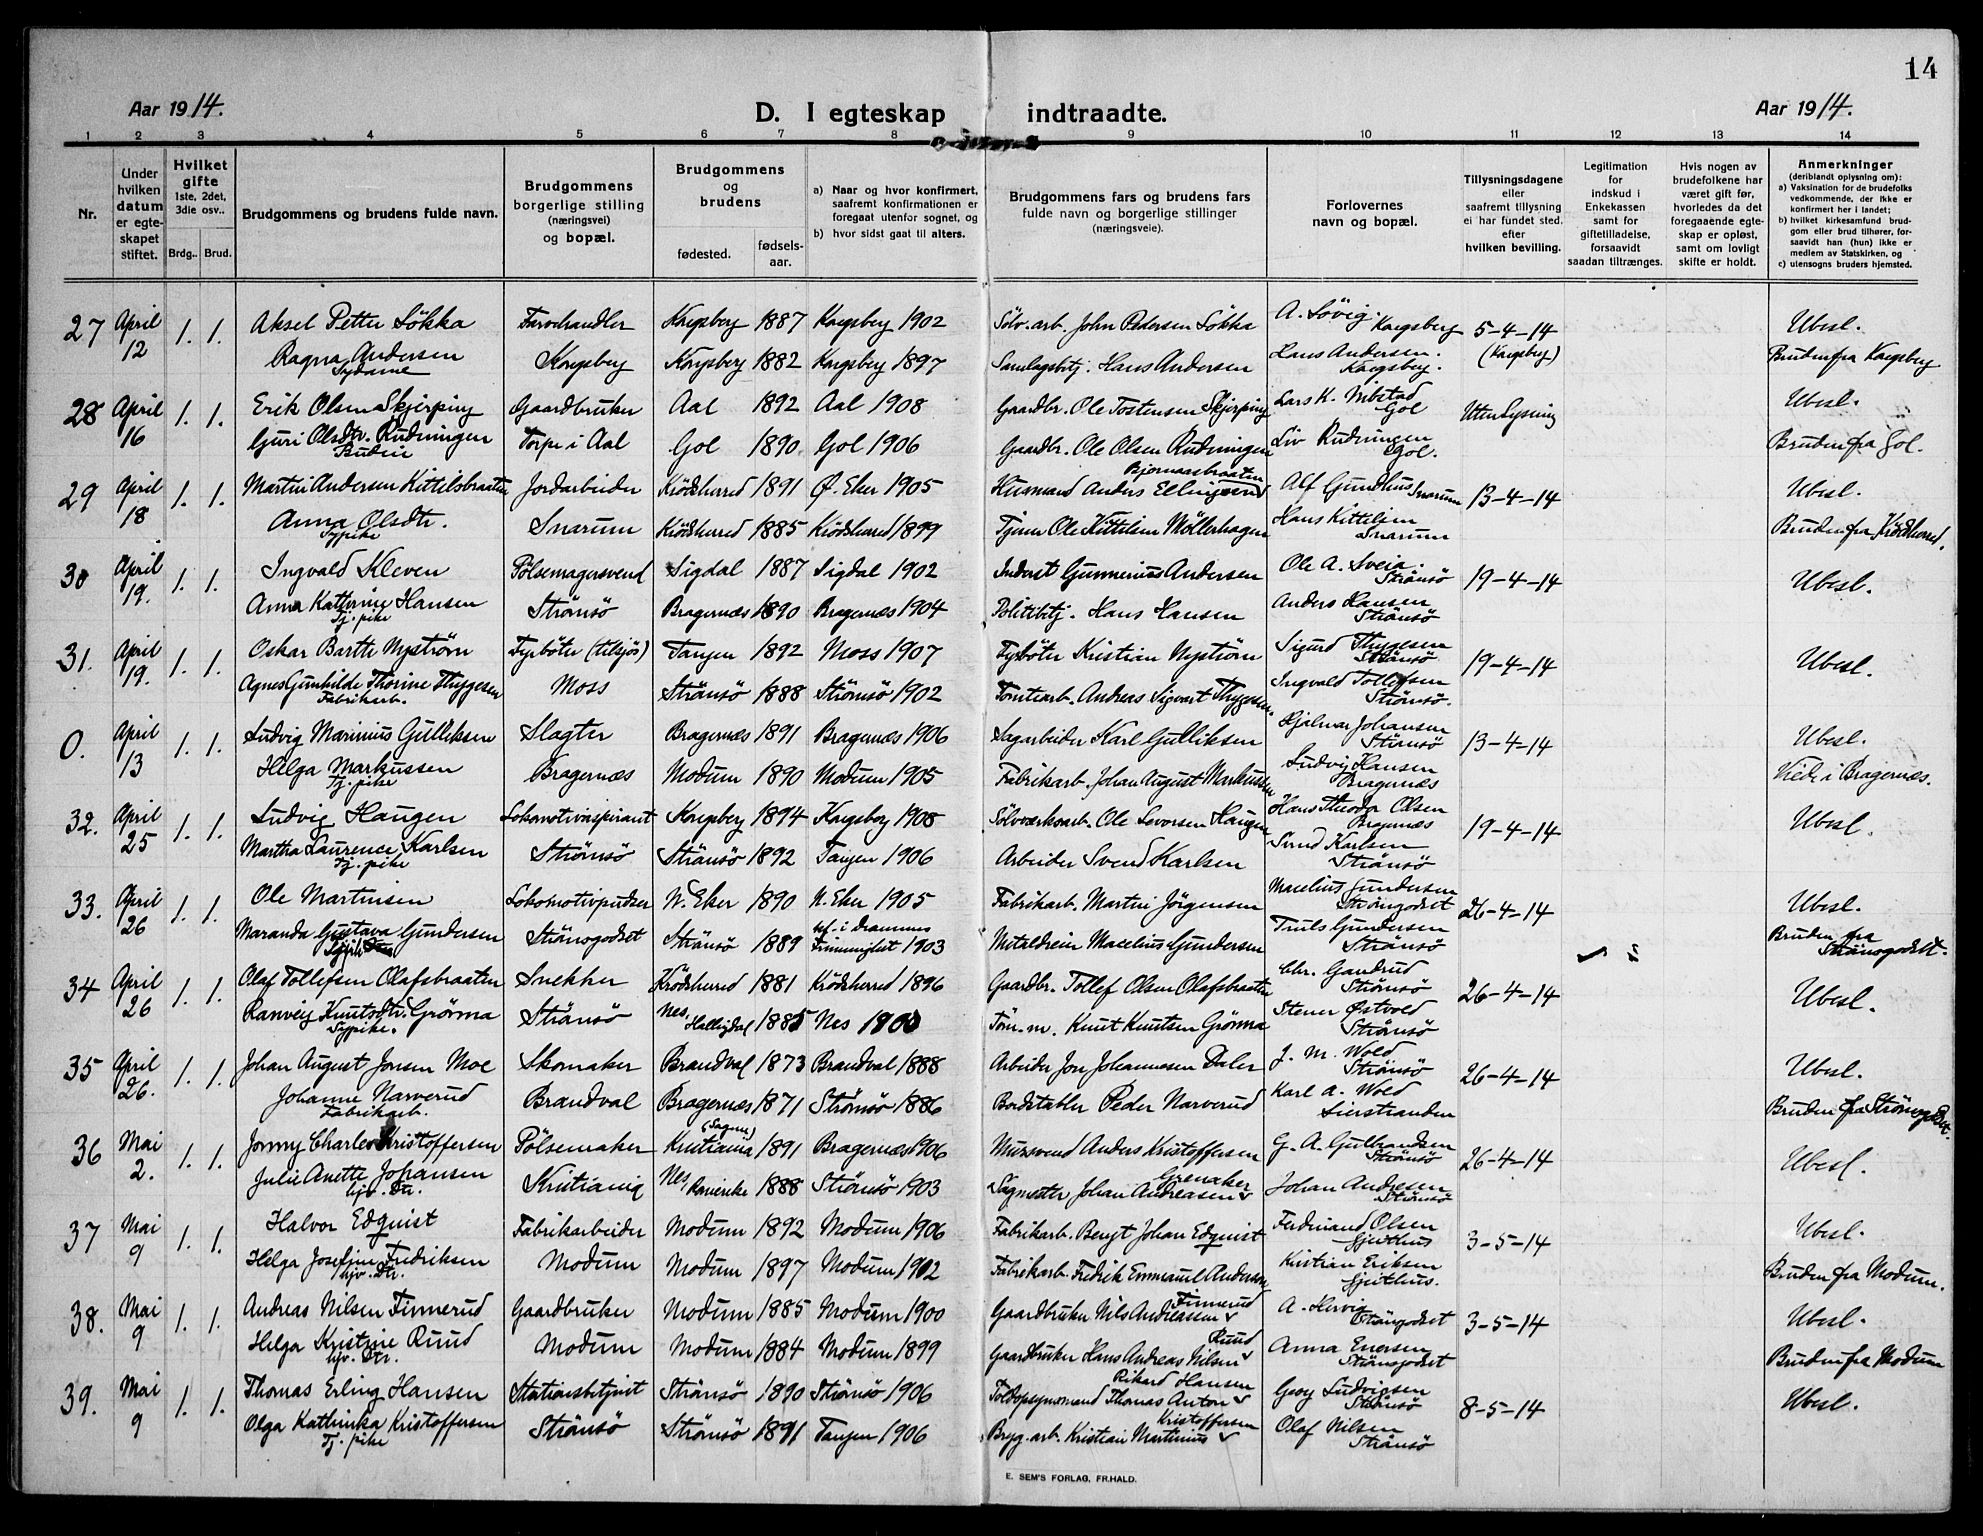 14
Aar 1914. D. I egteskap indtraadte. Aar 1914.
1 2 3 4 5 6 7 8 9 10 11 12 13 14
Nr.
Under hvilken datum er egteskapet stiftet.
Hvilket gifte 1ste, 2det, 3die osv..
Brdg.. Brud.
Brudgommens og brudens fulde navn.
Brudgommens borgerlige stilling (næringsvei) og bopæl.
Brudgommens og brudens
fødested. fødselsaar.
a) Naar og hvor konfirmert, saafremt konfirmationen er foregaat utenfor sognet, og
b) hvor sidst gaat til alters.
Brudgommens fars og brudens fars fulde navn og borgerlige stillinger (næringsveie).
Forlovernes navn og bopæl.
Tillysningsdagene eller saafremt tillysning ei har fundet sted. efter hvilken bevilling.
Legitimation for indskud i Enkekassen samt for giftetilladelse, forsaavidt saadan tiltrænges.
Hvis nogen av brudefolkene har været gift før, hvorledes da det foregaaende egteskap er opløst, samt om lovligt skifte er holdt.
Anmerkninger (deriblandt oplysning om):
a) Vaksination for de brudefolks vedkommende, der ikke er konfirmert her i landet;
b) hvilket kirkesamfund brudgom eller brud tilhører, forsaavidt han (hun) ikke er medlem av Statskirken, og
c) utensogns bruders hjemsted.
27 April 12 1. 1. Aksel Petter Løkka Farvehandler Kongsberg 1887 Kongsberg 1902 Sølv.arb. John Pedersen Løkka A. Løvig. Kongsberg 5-4-14 (Kongsberg) Ubesl.
Ragna Andersen Sydame Kongsberg Kongsberg 1882 Kongsberg 1897 Samlagsbtj. Hans Andersen Hans Andersen. Kongsberg. Bruden fra Kongsberg
28 April 16 1. 1. Erik Olsen Skjerping Gaardbruker Aal 1892 Aal 1908 Gaardbr. Ole Tostensen Skjerping Lars K. Gol Uten lysning Ubesl.
Guri Olsdtr. Rudningen Budeie Torpe i Aal Gol 1890 Gol 1906 Gaardbr. Ole Olsen Rudningen Liv Rudningen Gol. Bruden fra Gol.
29 April 18 1. 1. Martin Andersen Kittilsbraaten Jordarbeider Krödsherred 1891 Ø. Eker 1905 Husmand Anders Ellingsen Bjornaasbraaten Alf Gundhus Snarum 13-4-14 Ubesl.
Anna Olsdtr. Sypike Snarum Krödsherred 1885 Krödsherred 1899 Tjener Ole Kittelsen Möllerhagen Hans Kittelsen Snarum Bruden fra Krödsherred.
30 April 19. 1. 1. Ingvald Kleven Pölsemagersvend Sigdal 1887 Sigdal 1902 Inderst Gunnerius Andersen Ole A. Sveia. Strömsö 19-4-14 Ubesl.
Anna Kathrine Hansen Tj. pike Strömsö Bragernæs 1890 Bragernæs 1904 Politibtj. Hans Hansen Anders Hansen Strömsö
31. April 19. 1. 1. Oskar Barth Nyström Fyrböter (tilsjøs) Tangen 1892 Moss 1907 Fyrböter Kristian Nyström Sigurd Thygesen Strömsö 19-4-14 Ubesl.
Agnes Gunhilde Thorine Thygesen Fabrikarb. Moss Strömsö 1888 Strömsö 1902 Tomtearb. Andreas Sigvart Thygesen. Ingvald Tollefsen Strömsö.
0. April 13 1. 1. Ludvig Marinius Gulliksen Slagter Bragernæs 1891 Bragernæs 1906 Sagarbeider Karl Gulliksen Hjalmar Johansen Strömsö 13-4-14 Ubesl.
Helga Markussen Tj. pike Bragernæs Modum 1890 Modum 1905 Fabrikarb. Johan August Markussen Ludvig Hansen Bragernæs Viede i Bragernæs.
32. April 25 1. 1. Ludvig Haugen Lokomotivaspirant Kongsberg 1894 Kongsberg 1908 Sölvverksarb. Ole Levorsen Haugen Hans Theodor Olsen Bragernæs 19-4-14 Ubesl.
Martha Laurence Karlsen Tj. pike Strömsö Strömsö 1892 Tangen 1906 Arbeider Svend Karlsen Svend Karlsen Strömsö
33. April 26 1. 1. Ole Martinsen Lokomotivpudser N. Eker 1890 N. Eker 1905 Fabrikarb. Martin Jörgensen Marelius Gundersen Strömsgodset 26-4-14 Ubesl.
Maranda Gustava Gundersen Strömsgodset Strömsö 1889 bf. i Drammens Frimenighet 1903 Metaldreier Marelius Gundersen Truls Gundersen Strömsö Bruden fra Strömsgodset.
34 April 26 1. 1. Olaf Tollefsen Olafsbraaten Snekker Krödsherred 1881 Krödsherred 1896 Gaardbr. Tollef Olsen Olafsbraaten Chr. Gandrud Strömsö 26-4-14 Ubesl.
Ranveig Knutsdtr. Grönna Sypike. Strömsö Nes, Hallingdal 1885 Nes 1900 Töm.m. Knut Knutsen Grönna Stener Østvold Strömsö
35 April 26. 1. 1. Johan August Jonsen Moe Skomaker Brandval 1873 Brandval 1888 Arbeider Jon Johannesen Daler J. M. Wold Strömsö 26-4-14 Ubesl.
Johanne Narverud Fabrikarb. Brandval Bragernæs 1871 Strömsö 1886 Bordstabler Peder Narverud Karl A. Wold Lierstranden Bruden fra Strömsgodset.
36 Mai 2. 1. 1. Jonny Charles Kristoffersen Pölsemaker Kristiania (Sagene) 1891 Bragernæs 1906 Mursvend Anders Kristoffersen G. A. Gulbrandsen Strömsö 26-4-14 Ubesl.
Julie Anette Johansen hjv. Dtr. Kristiania Nes, Romerike 1888 Strömsö 1903 Sagmester Johan Andreasen Grenaker Johan Andresen Strömsö
37 Mai 9 1. 1. Halvor Edquist Fabrikarbeider Modum 1892 Modum 1906 Fabrikarb. Bengt Johan Edquist Ferdinand Olsen Gjeithus 3-5-14 Ubesl.
Helga Josefine Fredriksen hjv. Dtr. Modum Modum 1897 Modum 1912 Fabrikarb. Fredrik Emmanuel Andersen Kristian Eriksen Gjeithus. Bruden fra Modum.
38. Mai 9 1. 1. Andreas Nilsen Finnerud Gaardbruker Modum 1885 Modum 1900 Gaardbruker Nils Andreassen Finnerud A. Hervig Strömsgodset 3-5-14 Ubesl.
Helga Kristine Ruud hjv. Dtr. Modum Modum 1884 Modum 1899 Gaardbruker Hans Andreas Nilsen Ruud Anna Enersen Strömsgodset Bruden fra Modum
39. Mai 9 1. 1. Thomas Erling Hansen Stationsbetjent Strömsö 1890 Strömsö 1906 Toldopsynsmand Thomas Anton Rikard Hansen Georg Ludvigsen Strömsö 8-5-14 Ubesl.
Olga Kathinka Kristoffersen Tj. pike Strömsö Strömsö 1891 Tangen 1906 Bryg.arb. Kristian Martinius Kristoffersen Olaf Nilsen Strömsö
E. SEM'S FORLAG, FR.HALD.